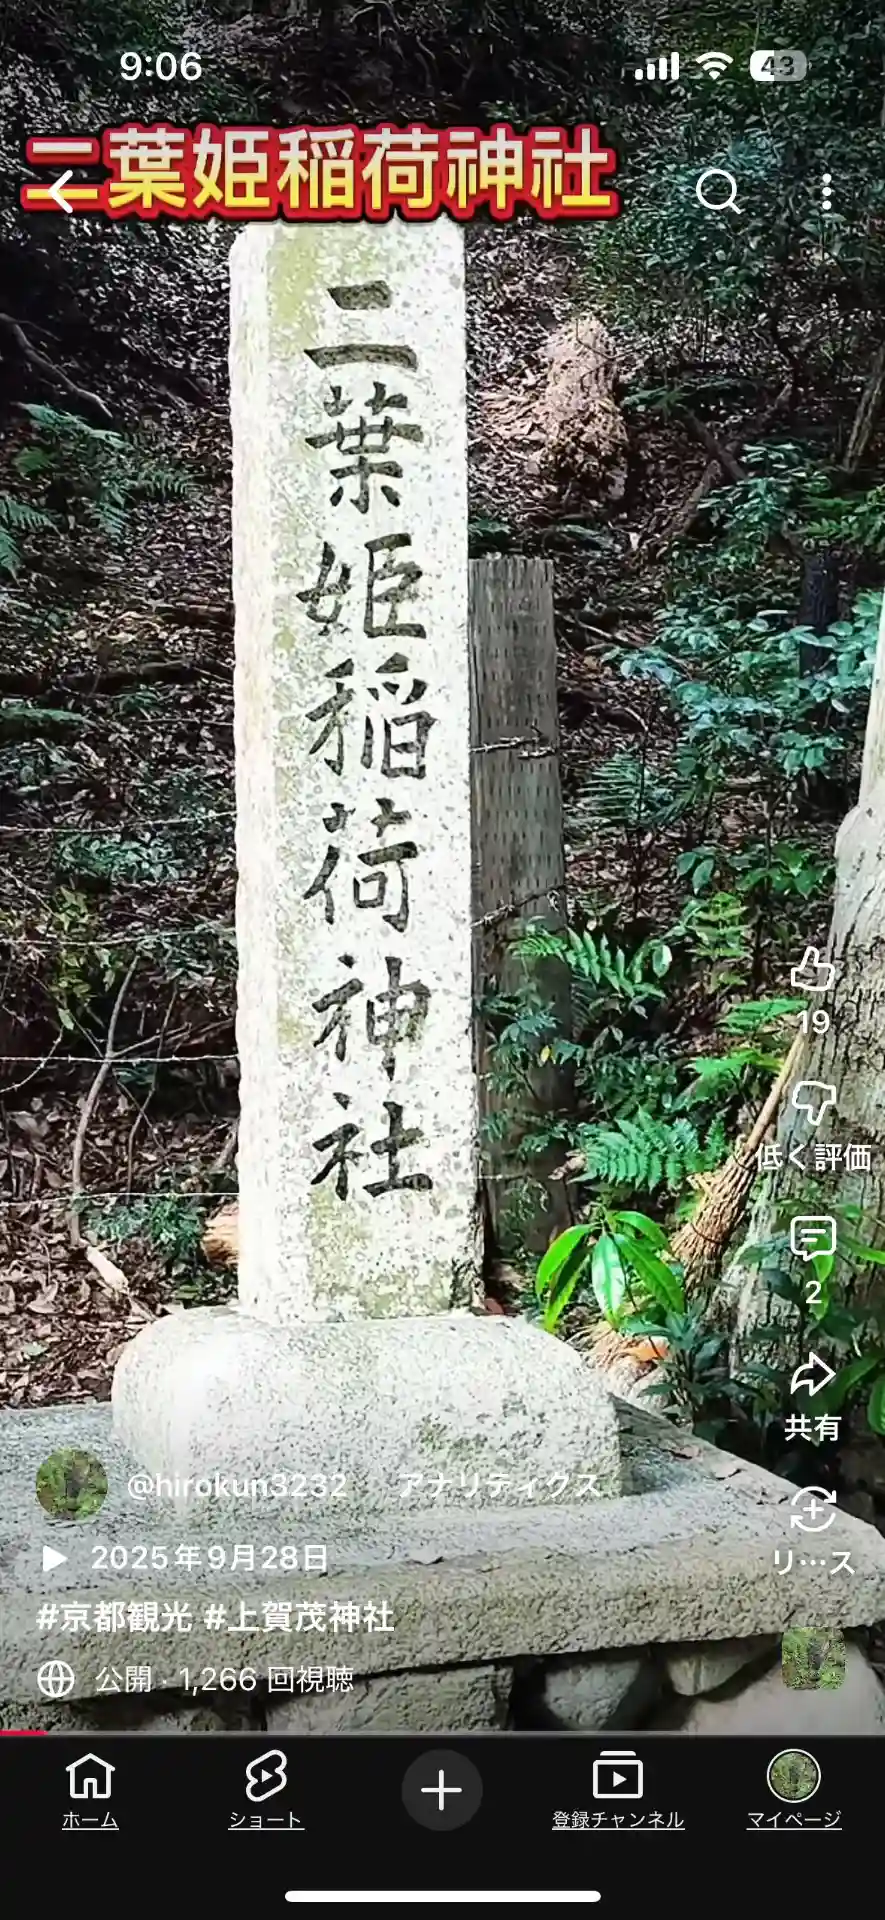 9:06
43
二葉姫稲荷神社
二葉姫稲荷神社
19
低く評価
2
共有
リ…ス
@hirokun3232 アナリティクス
2025年9月28日
#京都観光 #上賀茂神社
公開・1,266 回視聴
ホーム
ショート
登録チャンネル
マイページ